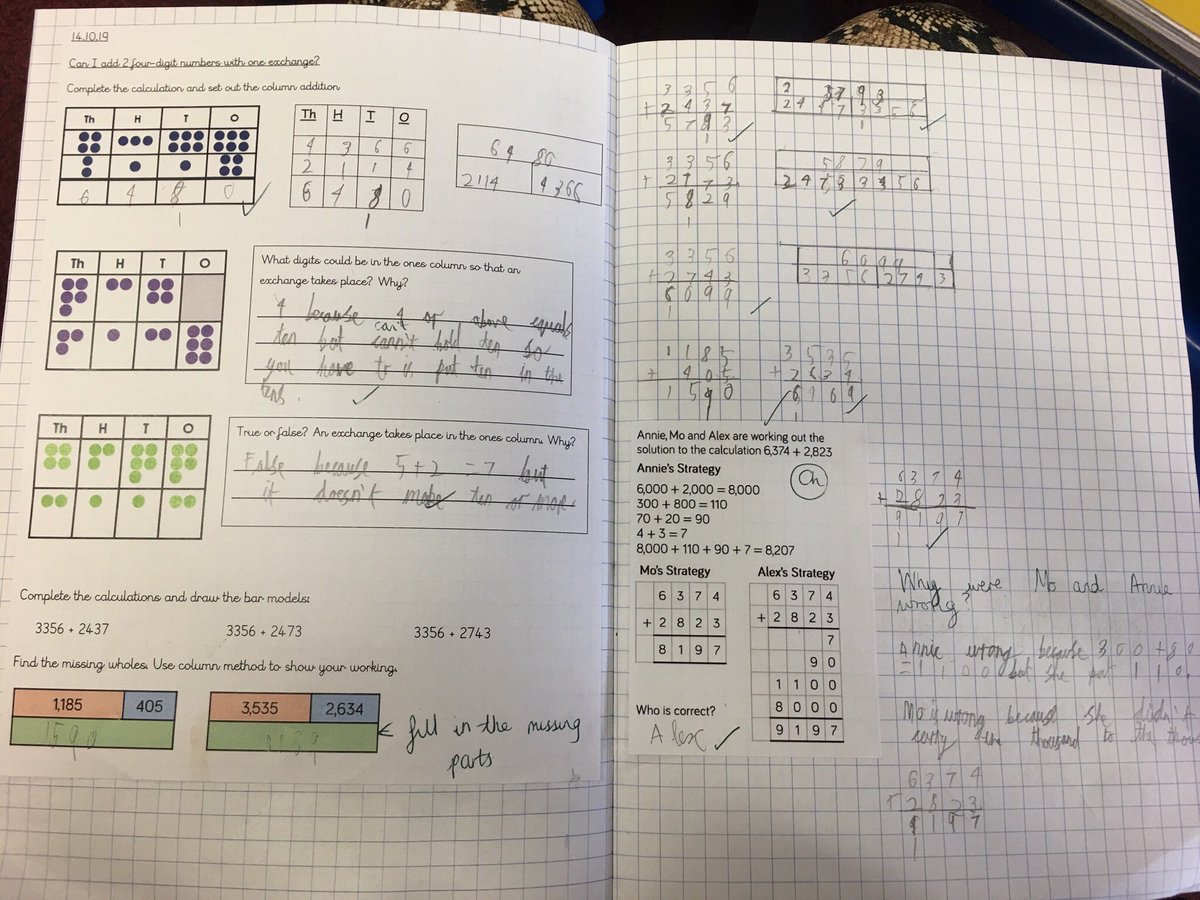 14.10.19
Can I add 2 four-digit numbers with one exchange?
Complete the calculation and set out the column addition
Th H T O
6 4 8 0
1
Th H T O
4 3 6 6
2 1 1 4
6 4 8 0
1
64 80
2114 4366
Th H T O
What digits could be in the ones column so that an
exchange takes place? Why?
4 because 4 or above equals
can't
ten but hold ten so
you have to put ten in the
tens.
Th H T O
True or false? An exchange takes place in the ones column. Why?
False because 5+2 =7 but
it doesn't make ten or more
Complete the calculations and draw the bar models:
3356 + 2437 3356 + 2473 3356 + 2743
Find the missing wholes. Use column method to show your working.
1,185 405 3,535 2,634
1590
fill in the missing
parts
3 3 5 6
+ 2 4 3 7
5 7 9 3
1
3 3 5 6
5 8 2 9
1
5 8 2 9
3 3 5 6
+ 2 7 4 3
6 0 9 9
1
6 0 9 9
3 3 5 6 2 7 4 3
1 1 8 5
+ 4 0 5
1 5 9 0
3 5 3 5
+ 2 6 3 4
6 1 6 9
1
Annie, Mo and Alex are working out the
solution to the calculation 6,374 + 2,823
Annie's Strategy
Ch
6,000 + 2,000 = 8,000
300 + 800 = 110
70 + 20 = 90
4 + 3 = 7
8,000 + 110 + 90 + 7 = 8,207
Mo's Strategy
6 3 7 4
+ 2 8 2 3
8 1 9 7
Alex's Strategy
6 3 7 4
+ 2 8 2 3
7
9 0
1 1 0 0
8 0 0 0
9 1 9 7
Who is correct?
Alex
6 3 7 4
+ 2 8 2 3
9 1 9 7
1
Why were Mo and Annie
wrong?
Annie wrong because 300 + 80
= 1100 but she put 110.
Mo is wrong because she didn't
carry the thousand to the
6 3 7 4
+ 2 8 2 3
9 1 9 7
1